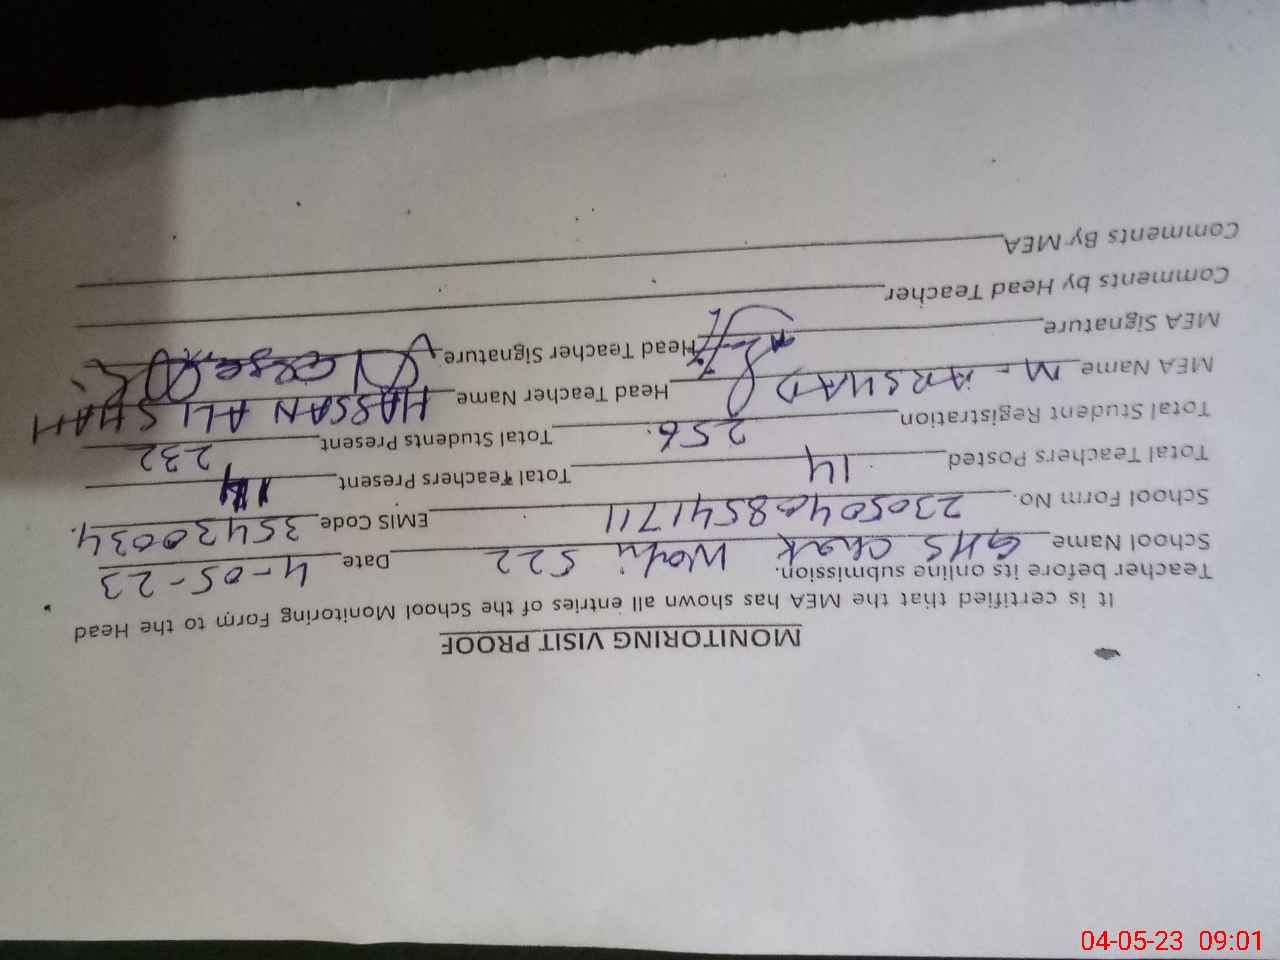 MONITORING VISIT PROOF
It is certified that the MEA has shown all entries of the School Monitoring Form to the Head
Teacher before its online submission.
School Name GHS Chak 522 Date 4-05-23
School Form No. EMIS Code 35430034.
Total Teachers Posted 14 Total Teachers Present 14
Total Student Registration 256. Total Students Present 232
MEA Name M. ARSHAD Head Teacher Name HASSAN ALI SHAH
MEA Signature Head Teacher Signature
Comments by Head Teacher
Comments By MEA
04-05-23 09:01